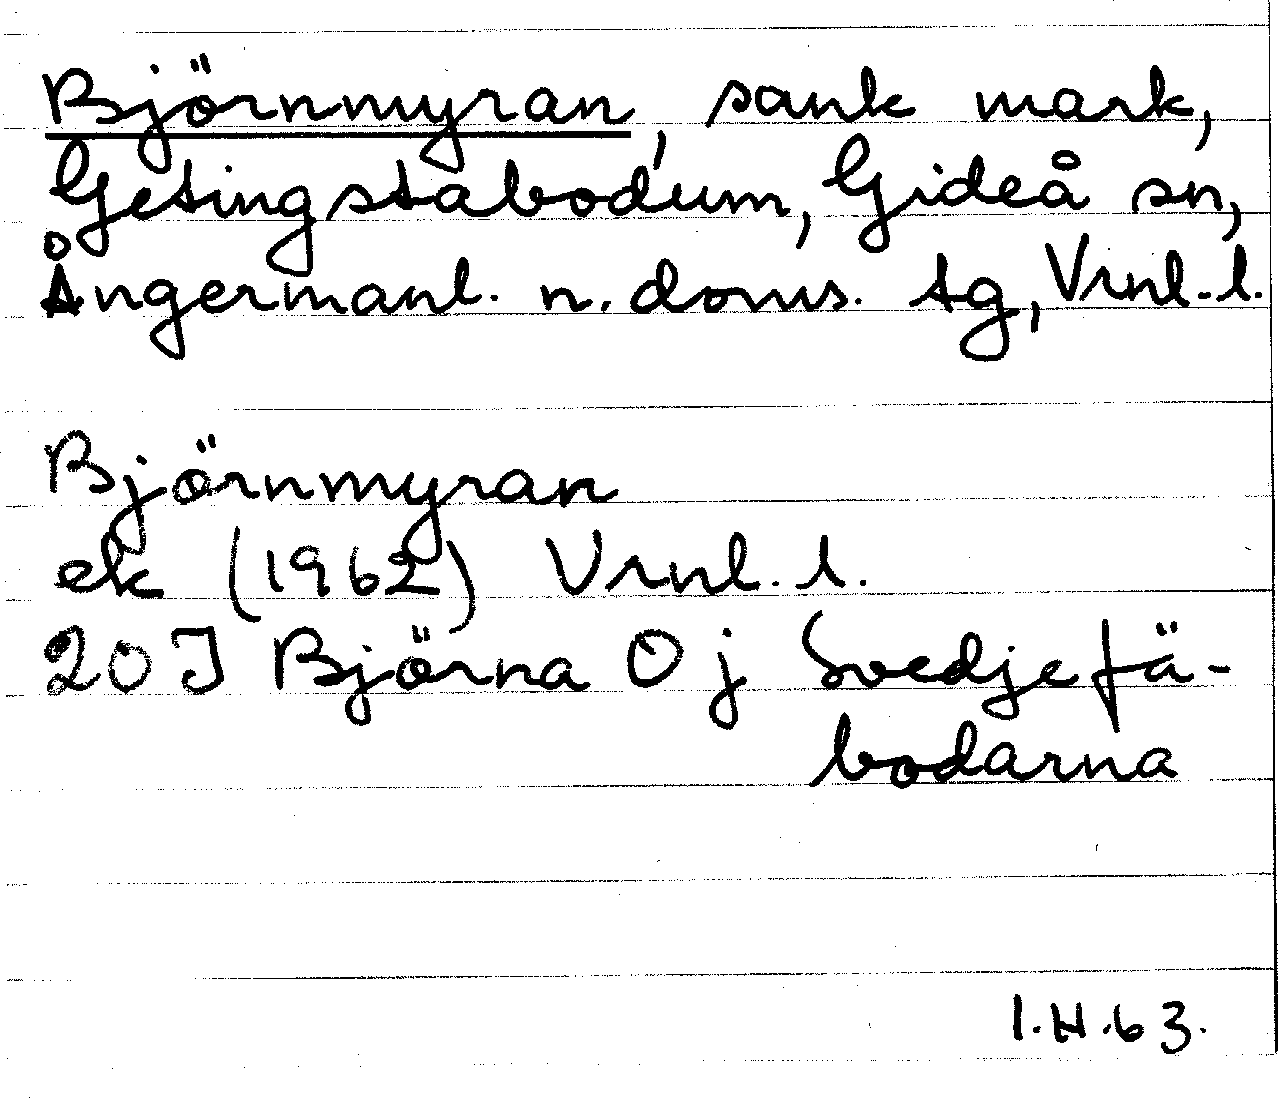 Björnmyran, sank mark,
Getingstabodum, Gideå sn,
Ångermanl. n. doms. tg, Vrnl. l.
Björnmyran
ek (1962) Vrnl. l.
20 J Björna O j Svedjefä-
bodarna
I.H.63.